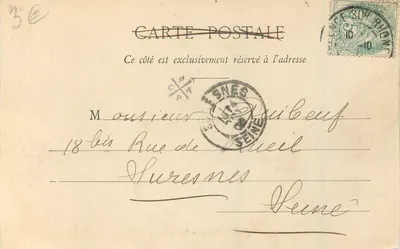 3€
CARTE POSTALE
Ce côté est exclusivement réservé à l'adresse
SUR RHÔNE
10
10
SURESNES
SEINE
Monsieur Quibeuf
18 bis Rue de Rueil
Suresnes
Seine